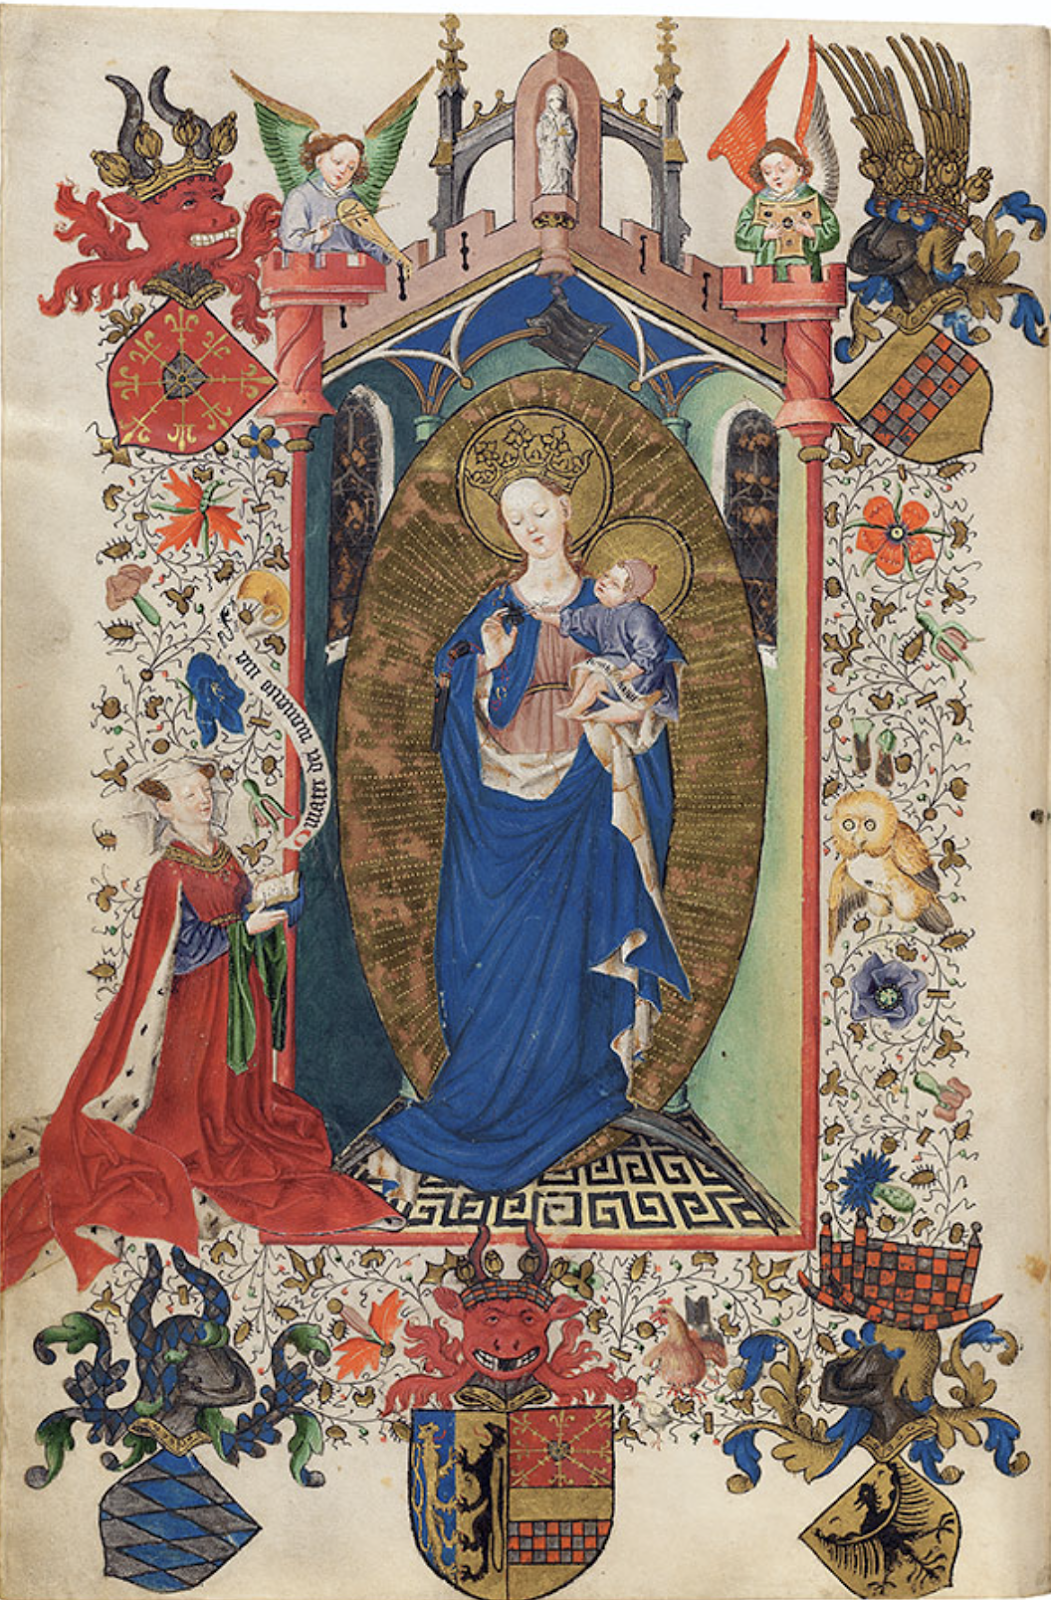 O mater dei memento mei